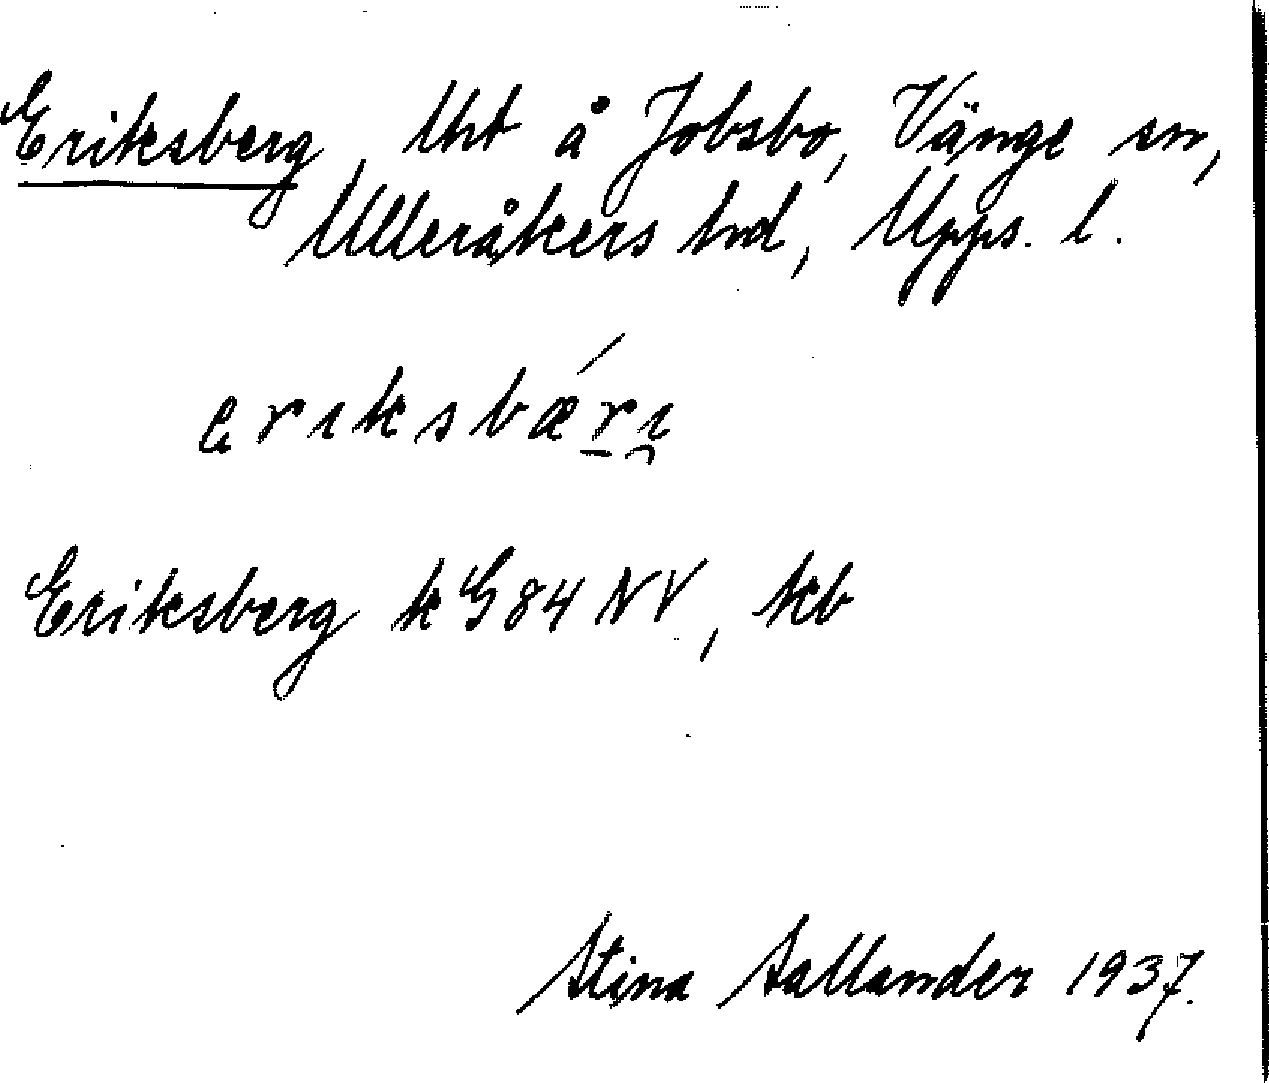 Eriksberg, lht å Jobsbo, Vänge sn,
Ulleråkers hd, Upps. l.
eriksbæ´ri
Eriksberg k G 84 NV, kb
Stina Sallander 1937.